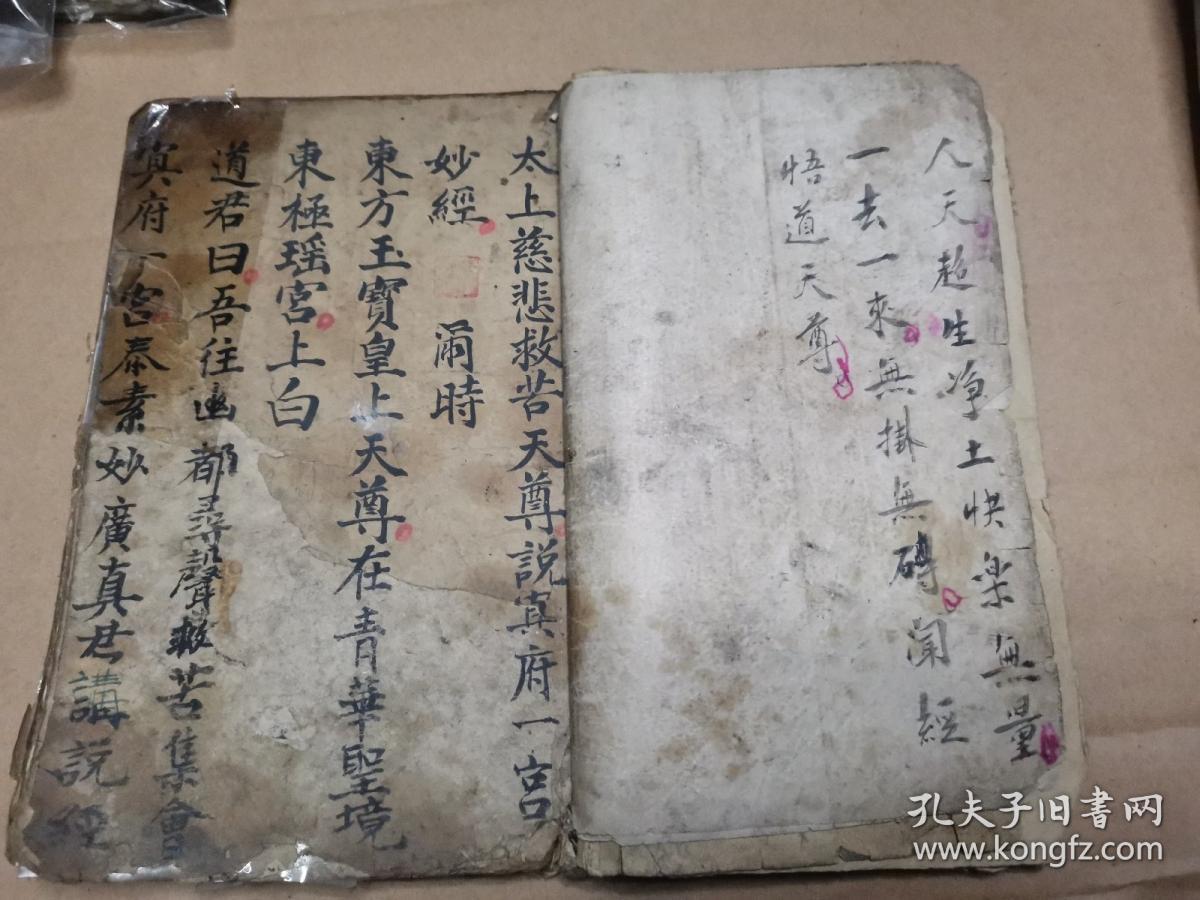 人天超生净土快楽無量
一去一來無掛無碍聞經
悟道天尊
太上慈悲救苦天尊説寘府一宫
妙經 爾時
東方玉寳皇上天尊在青華聖境
東極瑶宫上白
道君曰吾往幽都尋聲救苦集會
寘府丁宫泰素妙廣真君講説經
孔夫子旧書网
www.kongfz.com